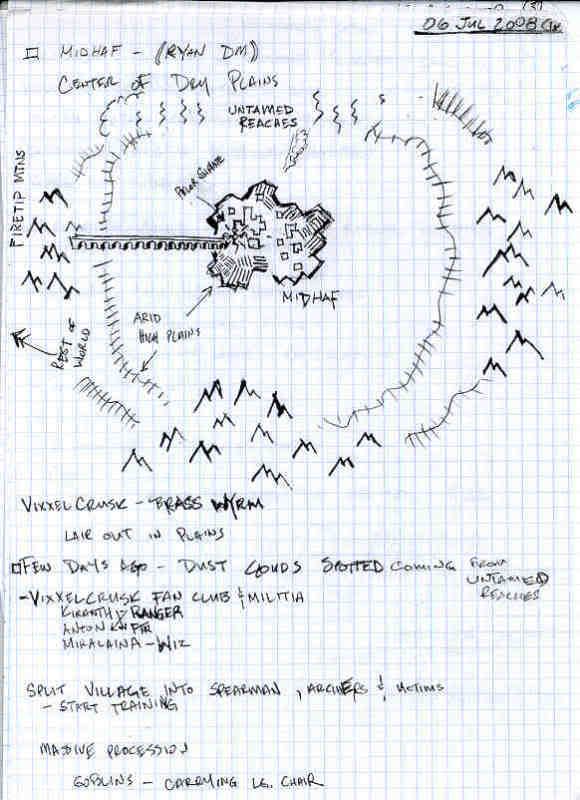 (3)
06 JUL 2008
MIDHAF - (RYAN DM)
CENTER OF DRY PLAINS
UNTAMED
REACHES
FIRETIP MTNS
MIDHAF
ARID
HIGH PLAINS
REST OF
WORLD
VIXXELCRUSK - BRASS WYRM
LAIR OUT IN PLAINS
FEW DAYS AGO - DUST CLOUDS SPOTTED COMING FROM
UNTAMED
REACHES
- VIXXELCRUSK FAN CLUB & MILITIA
RANGER
ANTON FTR
MIKALAINA - WIZ
SPLIT VILLAGE INTO SPEARMAN, ARCHERS & VICTIMS
- START TRAINING
MASSIVE PROCESSION
GOBLINS - CARRYING LG. CHAIR